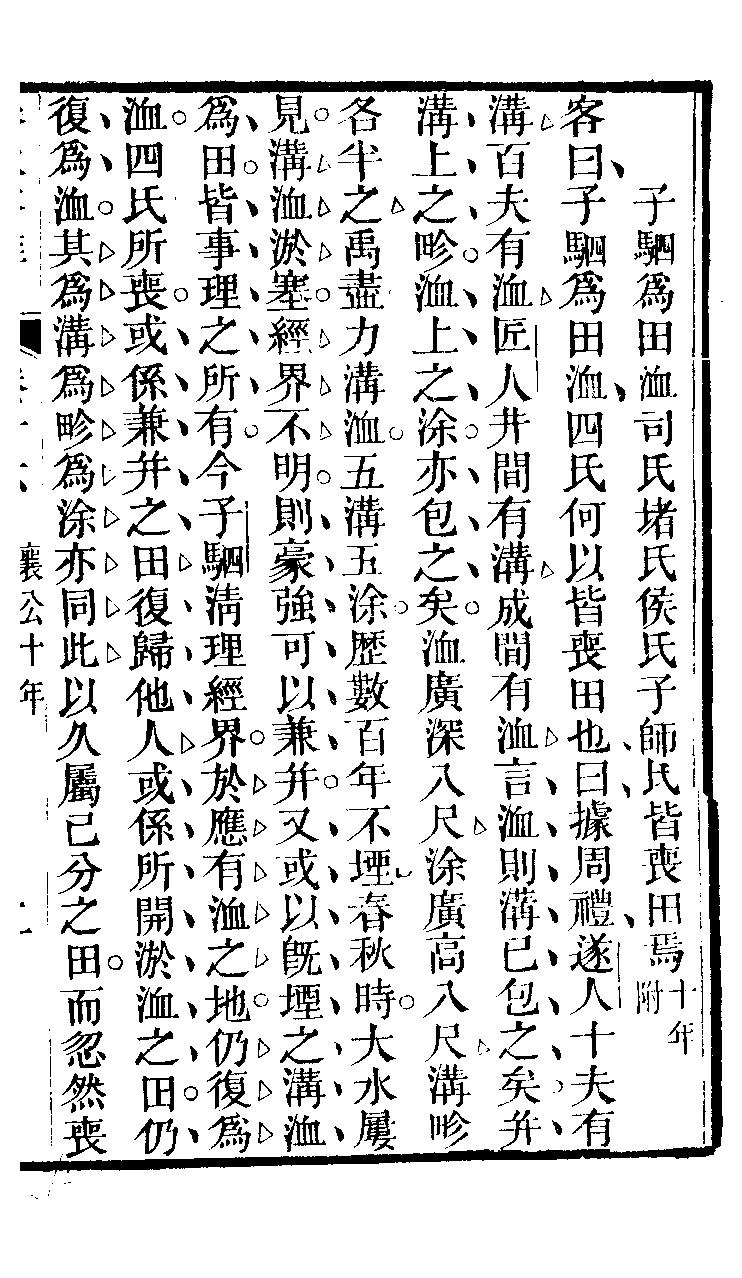 子駟爲田洫司氏堵氏侯氏子師氏皆喪田焉十年附
客曰子駟爲田洫四氏何以皆喪田也曰據周禮遂人十夫有
溝百夫有洫匠人井間有溝成間有洫言洫則溝已包之矣幷
溝上之畛洫上之涂亦包之矣洫廣深八尺涂廣高八尺溝畛
各半之禹盡力溝洫五溝五涂歷數百年不堙春秋時大水屢
見溝洫淤塞經界不明則豪強可以兼幷又或以旣堙之溝洫
爲田皆事理之所有今子駟淸理經界於應有洫之地仍復爲
洫四氏所喪或係兼幷之田復歸他人或係所開淤洫之田仍
復爲洫其爲溝爲畛爲涂亦同此以久屬已分之田而忽然喪
襄公十年